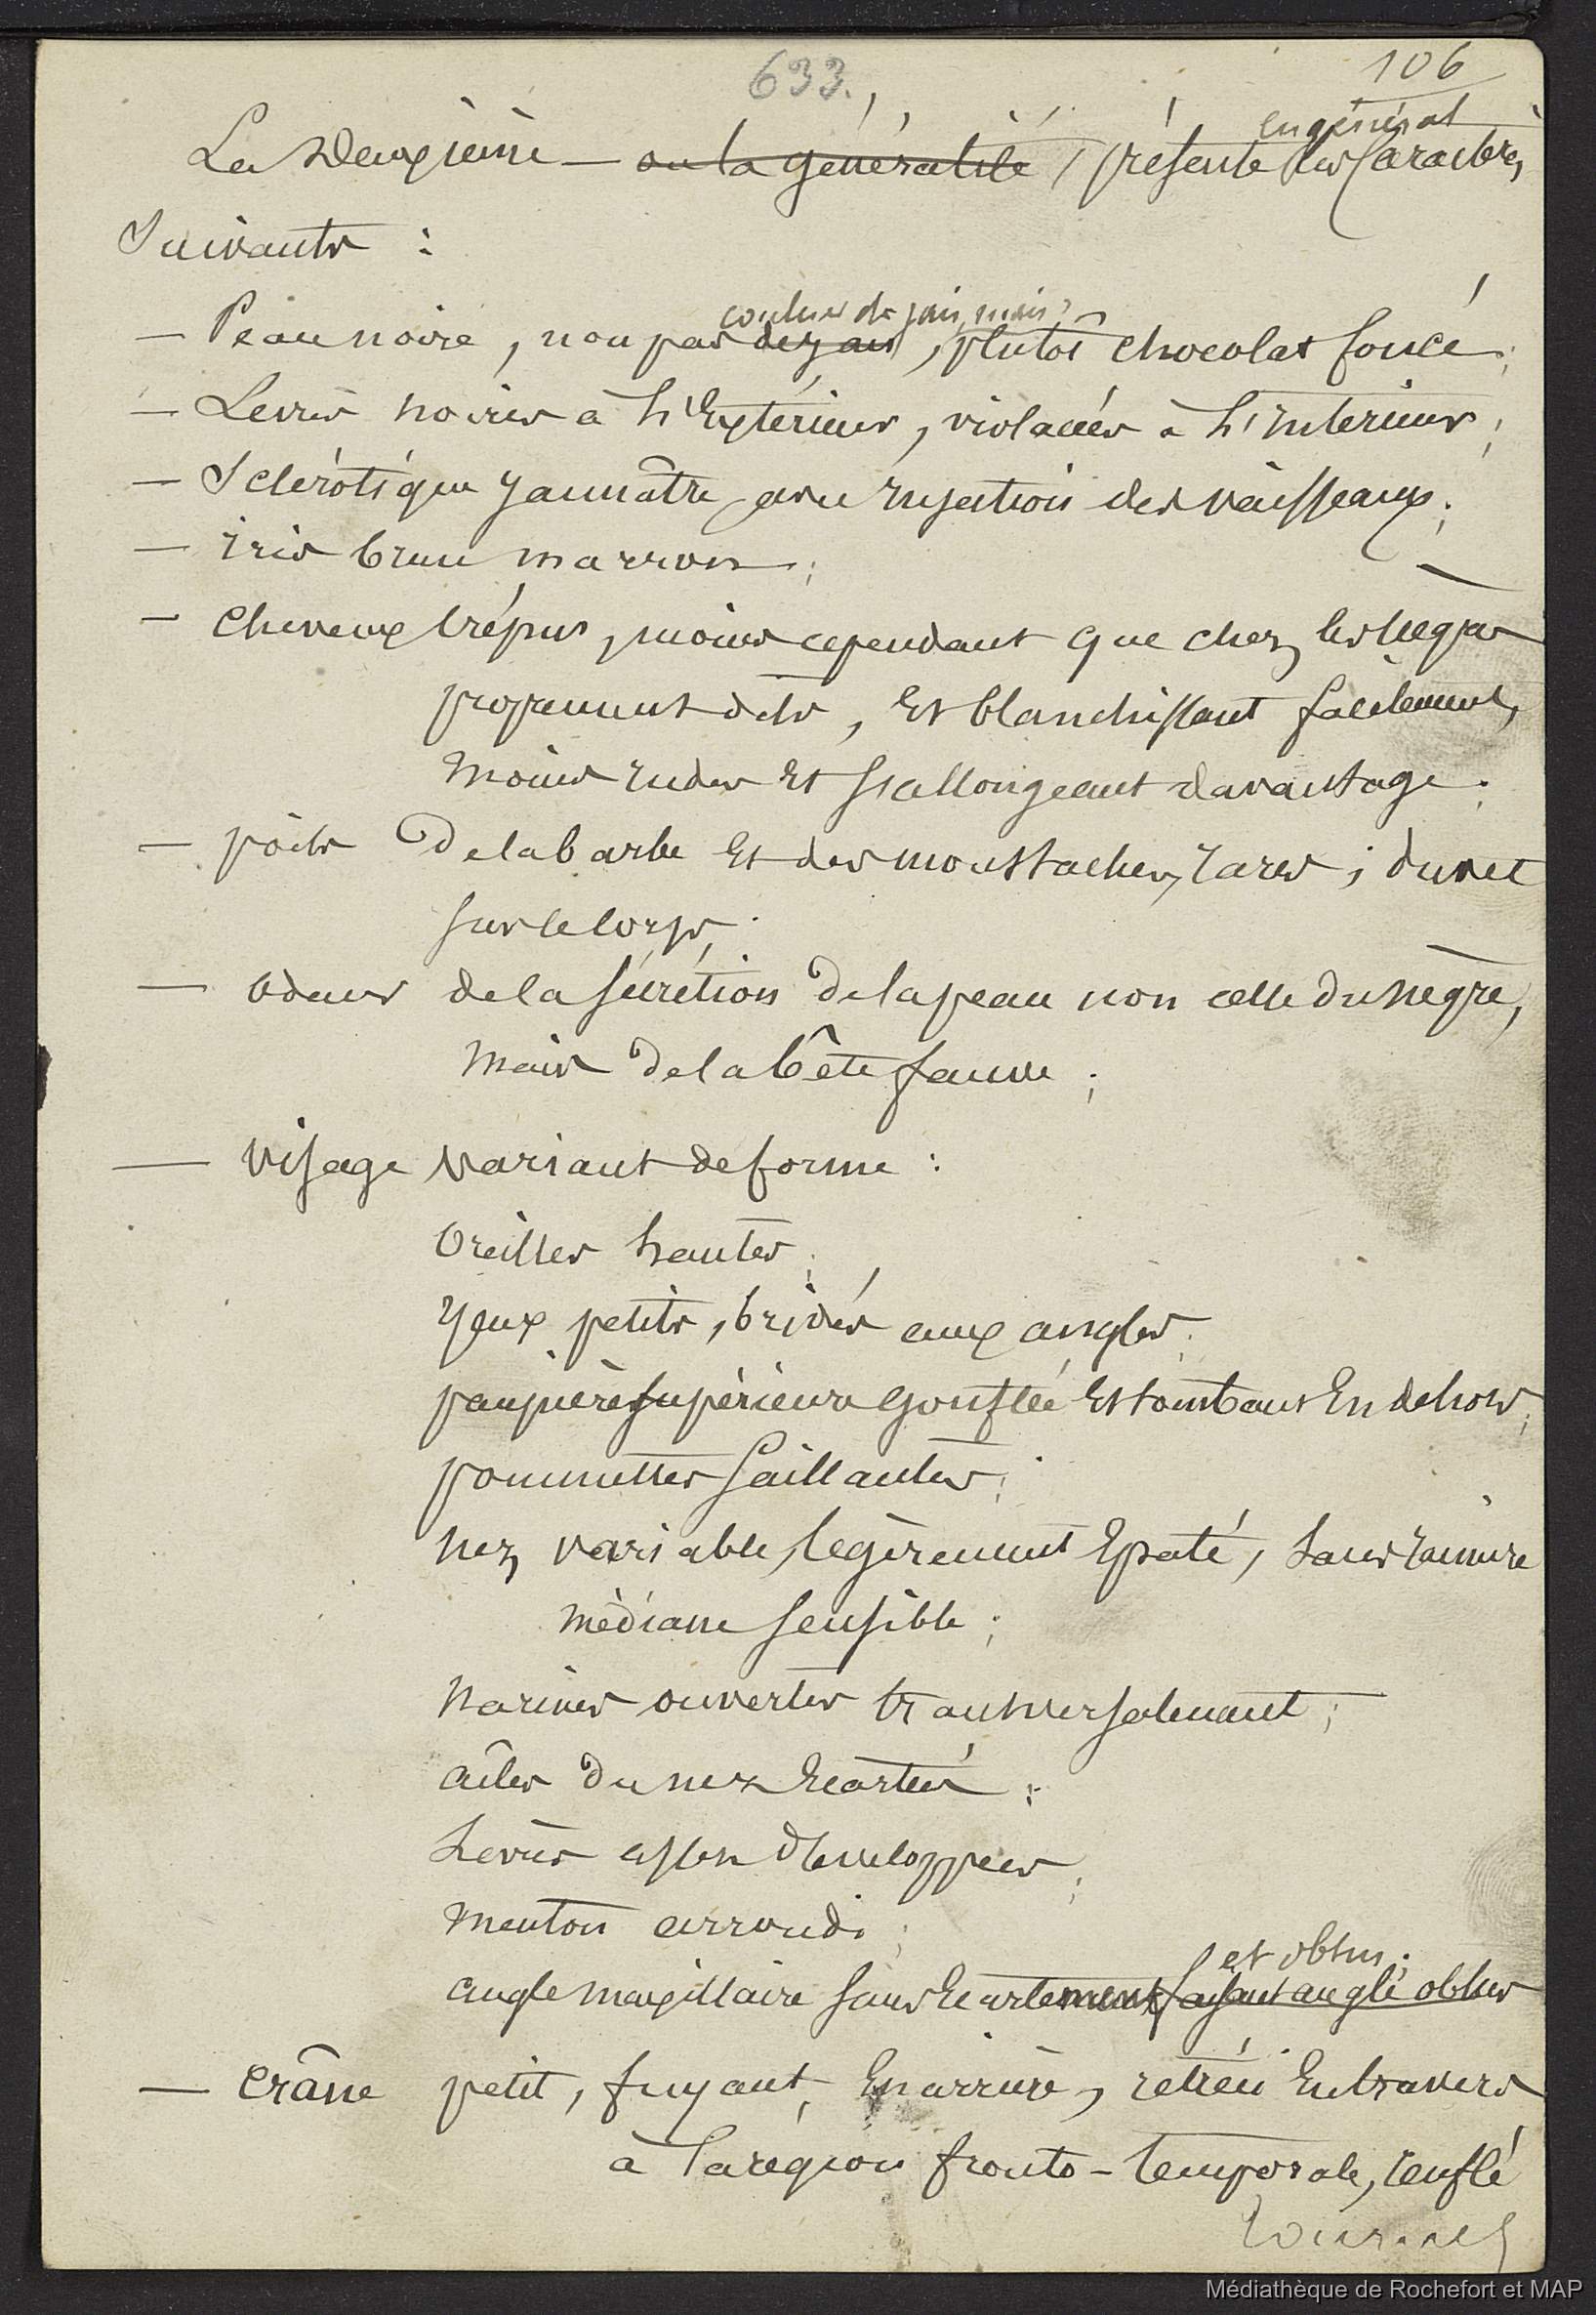 633.
106
en général
La Deuxième — ou la généralité, présente les Caractères
Suivants :
couleur de jais, mais
— Peau noire, non pas de jais, plutôt chocolat foncé ;
— Levres noires à l'Extérieur, violacées à l'interieur ;
— Sclérotique jaunâtre, avec injection des vaisseaux ;
— iris brun marron ;
— Cheveux crépus, moins cependant que chez les Nègres
proprement dits, Et blanchissant facilement,
moins rudes Et s'allongeant davantage ;
— poils De la barbe Et des moustaches, rares ; duvet
sur le corps ;
— odeur de la sécrétion De la peau non celle du nègre,
mais De la bête fauve ;
— Visage variant de forme :
Oreilles hautes ;
Yeux petits, bridés aux angles ;
paupière supérieure gonflée Et tombant En dehors ;
pommettes Saillantes ;
nez variable, legèrement Epaté, sans rainure
mèdiane sensible ;
Narines ouvertes transversalement ;
ailes du nez Ecartées ;
Levres assez développées ;
menton arrondi ;
et obtus ;
angle maxillaire sans Ecartement faisant angle obtus
— Crâne petit, fuyant En arrière, rétréci En travers
à la région fronto-temporale, renflé